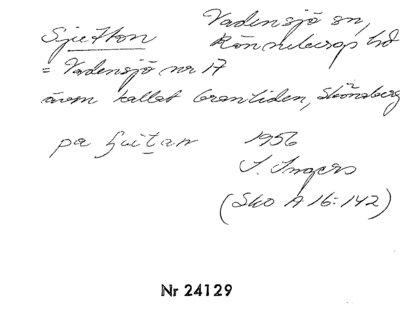 Sjutton Vadensjö sn,
Rönnebergs hd
= Vadensjö nr 17
även kallat Grantiden, Skönsberg
på 1956
S. Ingers
(Sko A 16:142)
Nr 24129